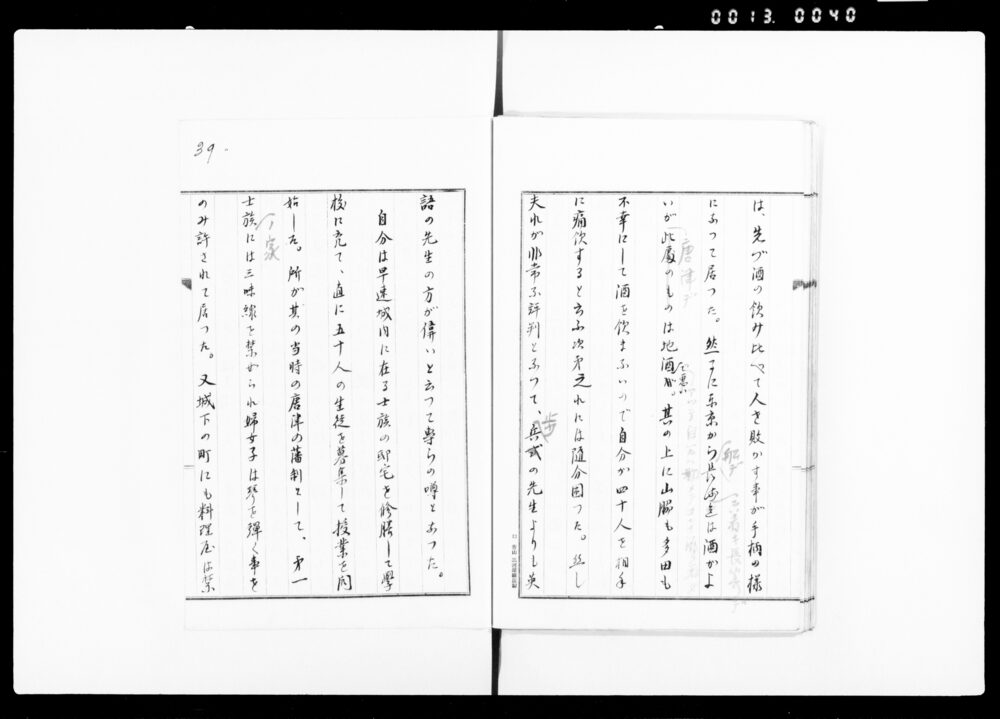 0013. 0040
は、先づ酒の飲み比べて人を敗かす事が手柄の様
になつて居つた。然るに東京から長崎迄は酒がよ
いが此処のものは地酒が。其の上に山脇も多田も
唐津デ
不幸にして酒を飲まないので自分が四十人を相手
に痛飲すると云ふ次第之れには随分困つた。然し
夫れが非常な評判となつて、兵式の先生よりも英
歩
語の先生の方が偉いと云つて専らの噂となつた。
自分は早速城内に在る士族の邸宅を修膳して学
校に充て、直に五十人の生徒を募集して授業を開
始した。所が其の当時の唐津の藩制として、第一
士族には三味線を禁ぜられ婦女子は琴を弾く事を
ノ家
のみ許されて居つた。又城下の町にも料理屋は禁
39.